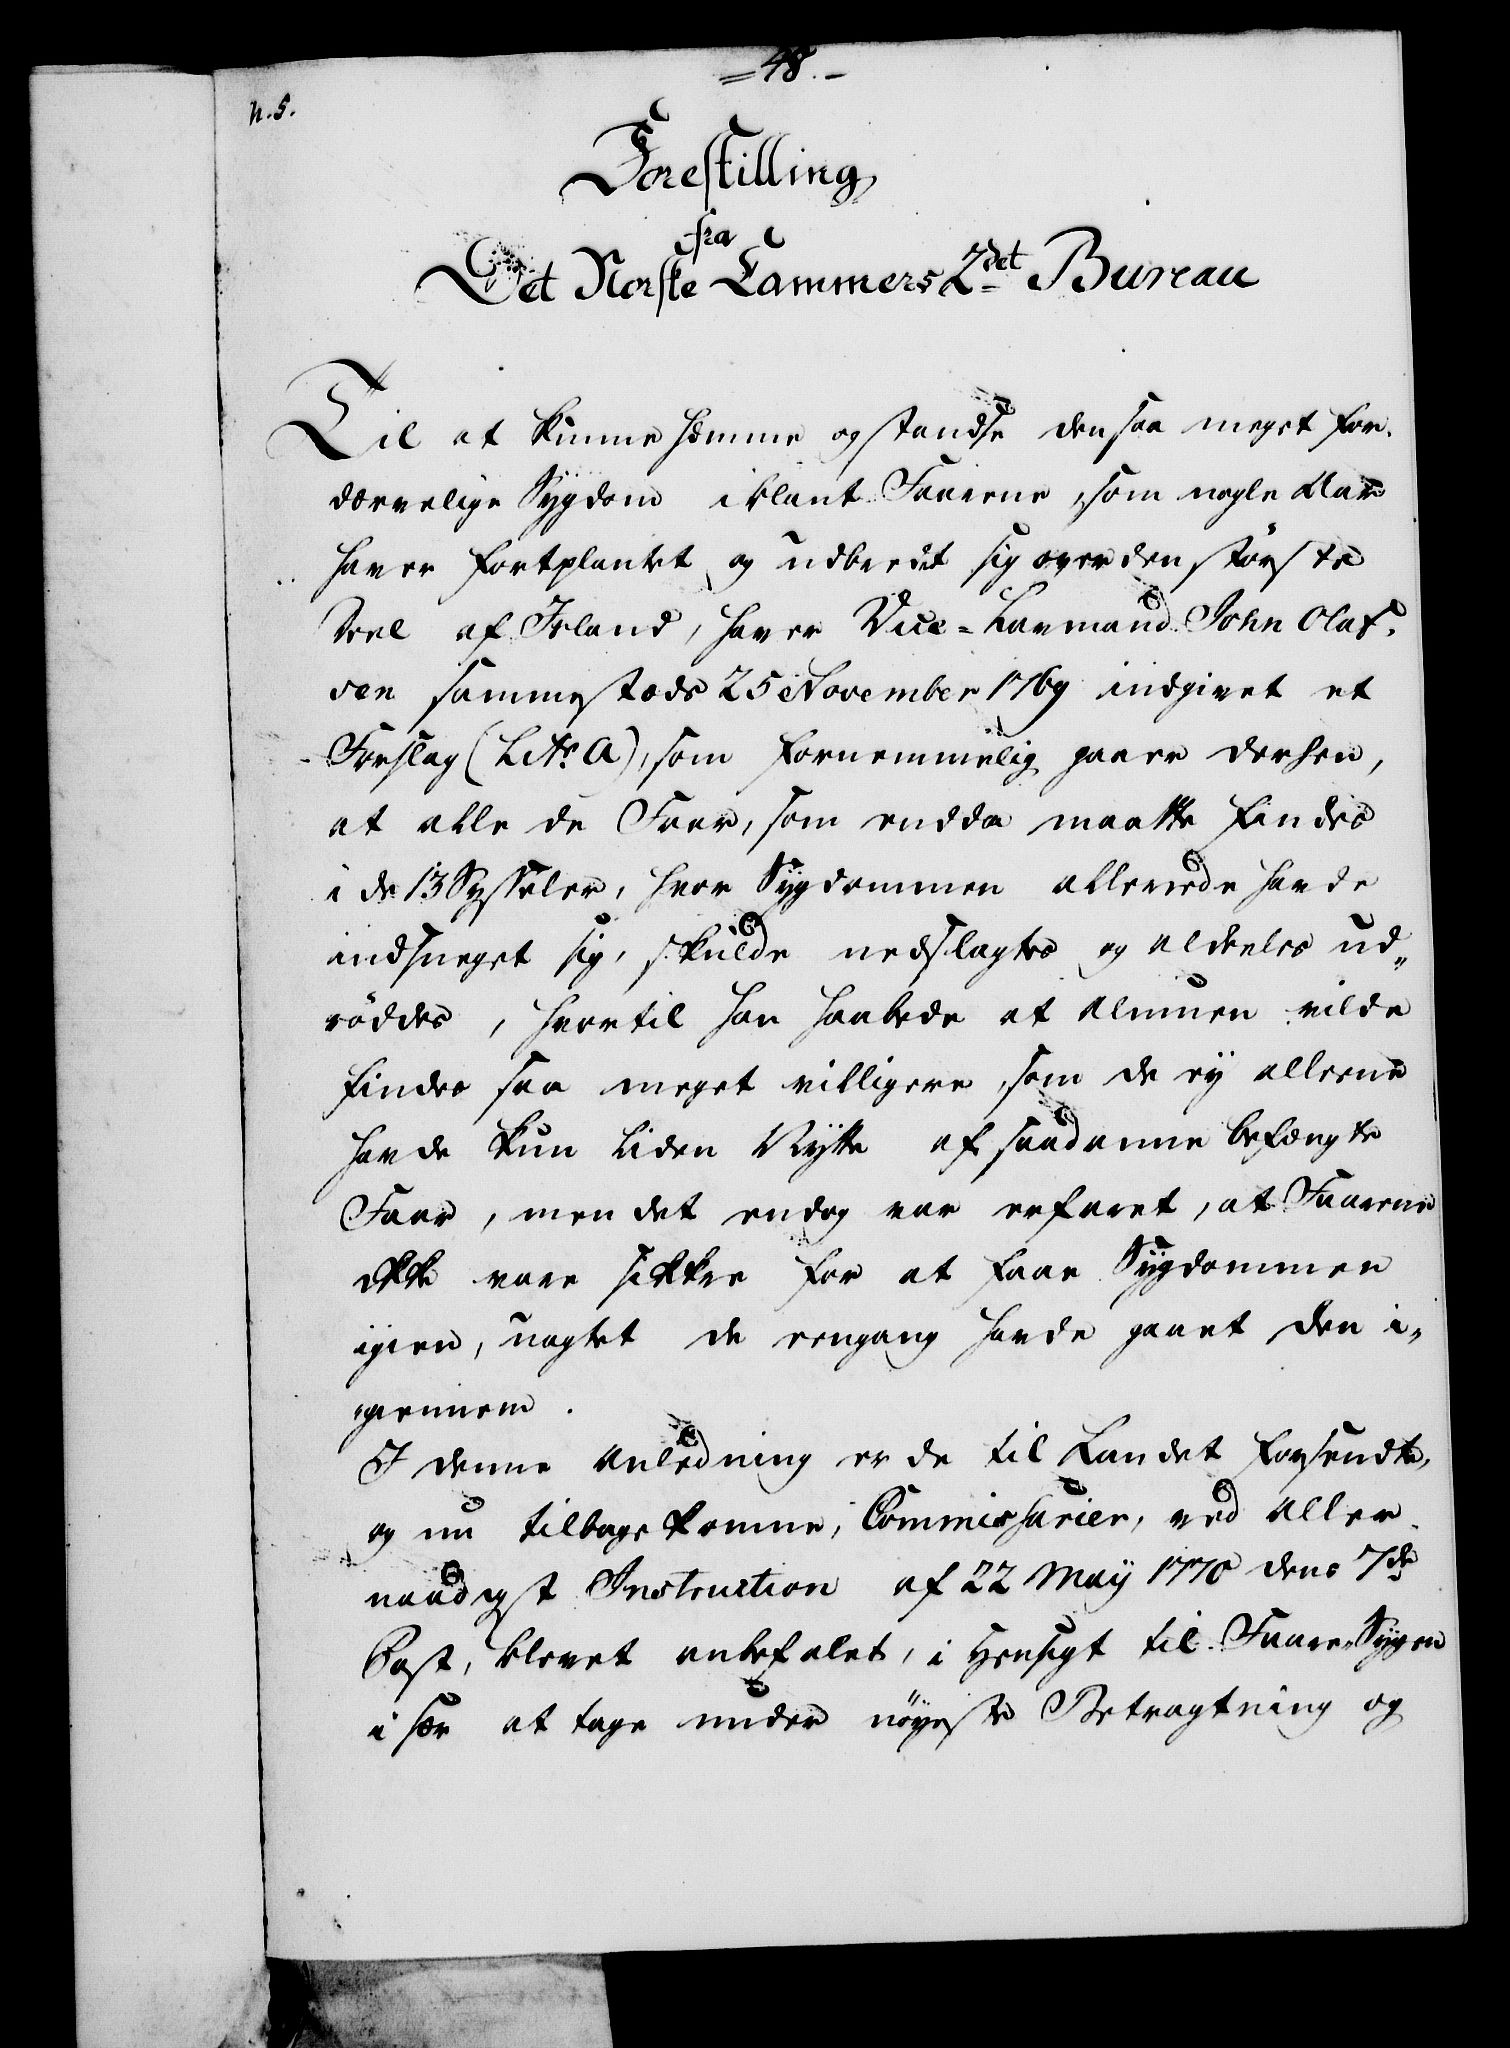 =48.-
n. 5.
Forestilling
fra
Det Norske Cammers 2det Bureau
Til at kunne hemme og standse den saa meget for-
dærvelige Sygdom iblant Faarene, som nogle Aar
haver fortplantet og udbredet sig over den störste
Deel af Island, haver Vice-Lavmand John Olaf-
sen sammestæds 25 November 1769 indgivet et
Forslag (Litr. A), som fornemmelig gaaer derhen,
at alle de Faar, som endda maatte findes
i de 13 Sysseler, hvor Sygdommen allerede havde
indsneget sig, skulde nedslagtes og aldeeles ud„
röddes, hvortil han haabede at Almuen vilde
findes saa meget villigere, som de ey alleene
havde kun liden Nytte af saadanne befængte
Faar, men det endog var erfaret, at Faarene
ikke vare sikkre for at faae Sygdommen
igien, uagtet de eengang havde gaaet den i„
giennem.
I denne Anledning er de til Landet forsendte,
og nu tilbagekomne, Commissarier, ved Aller-
naadigst Instruction af 22 May 1770 dens 7de
Post, blevet anbefalet, i Hensigt til Faare-Sygen
i sær at tage under nöyeste Betragtning og